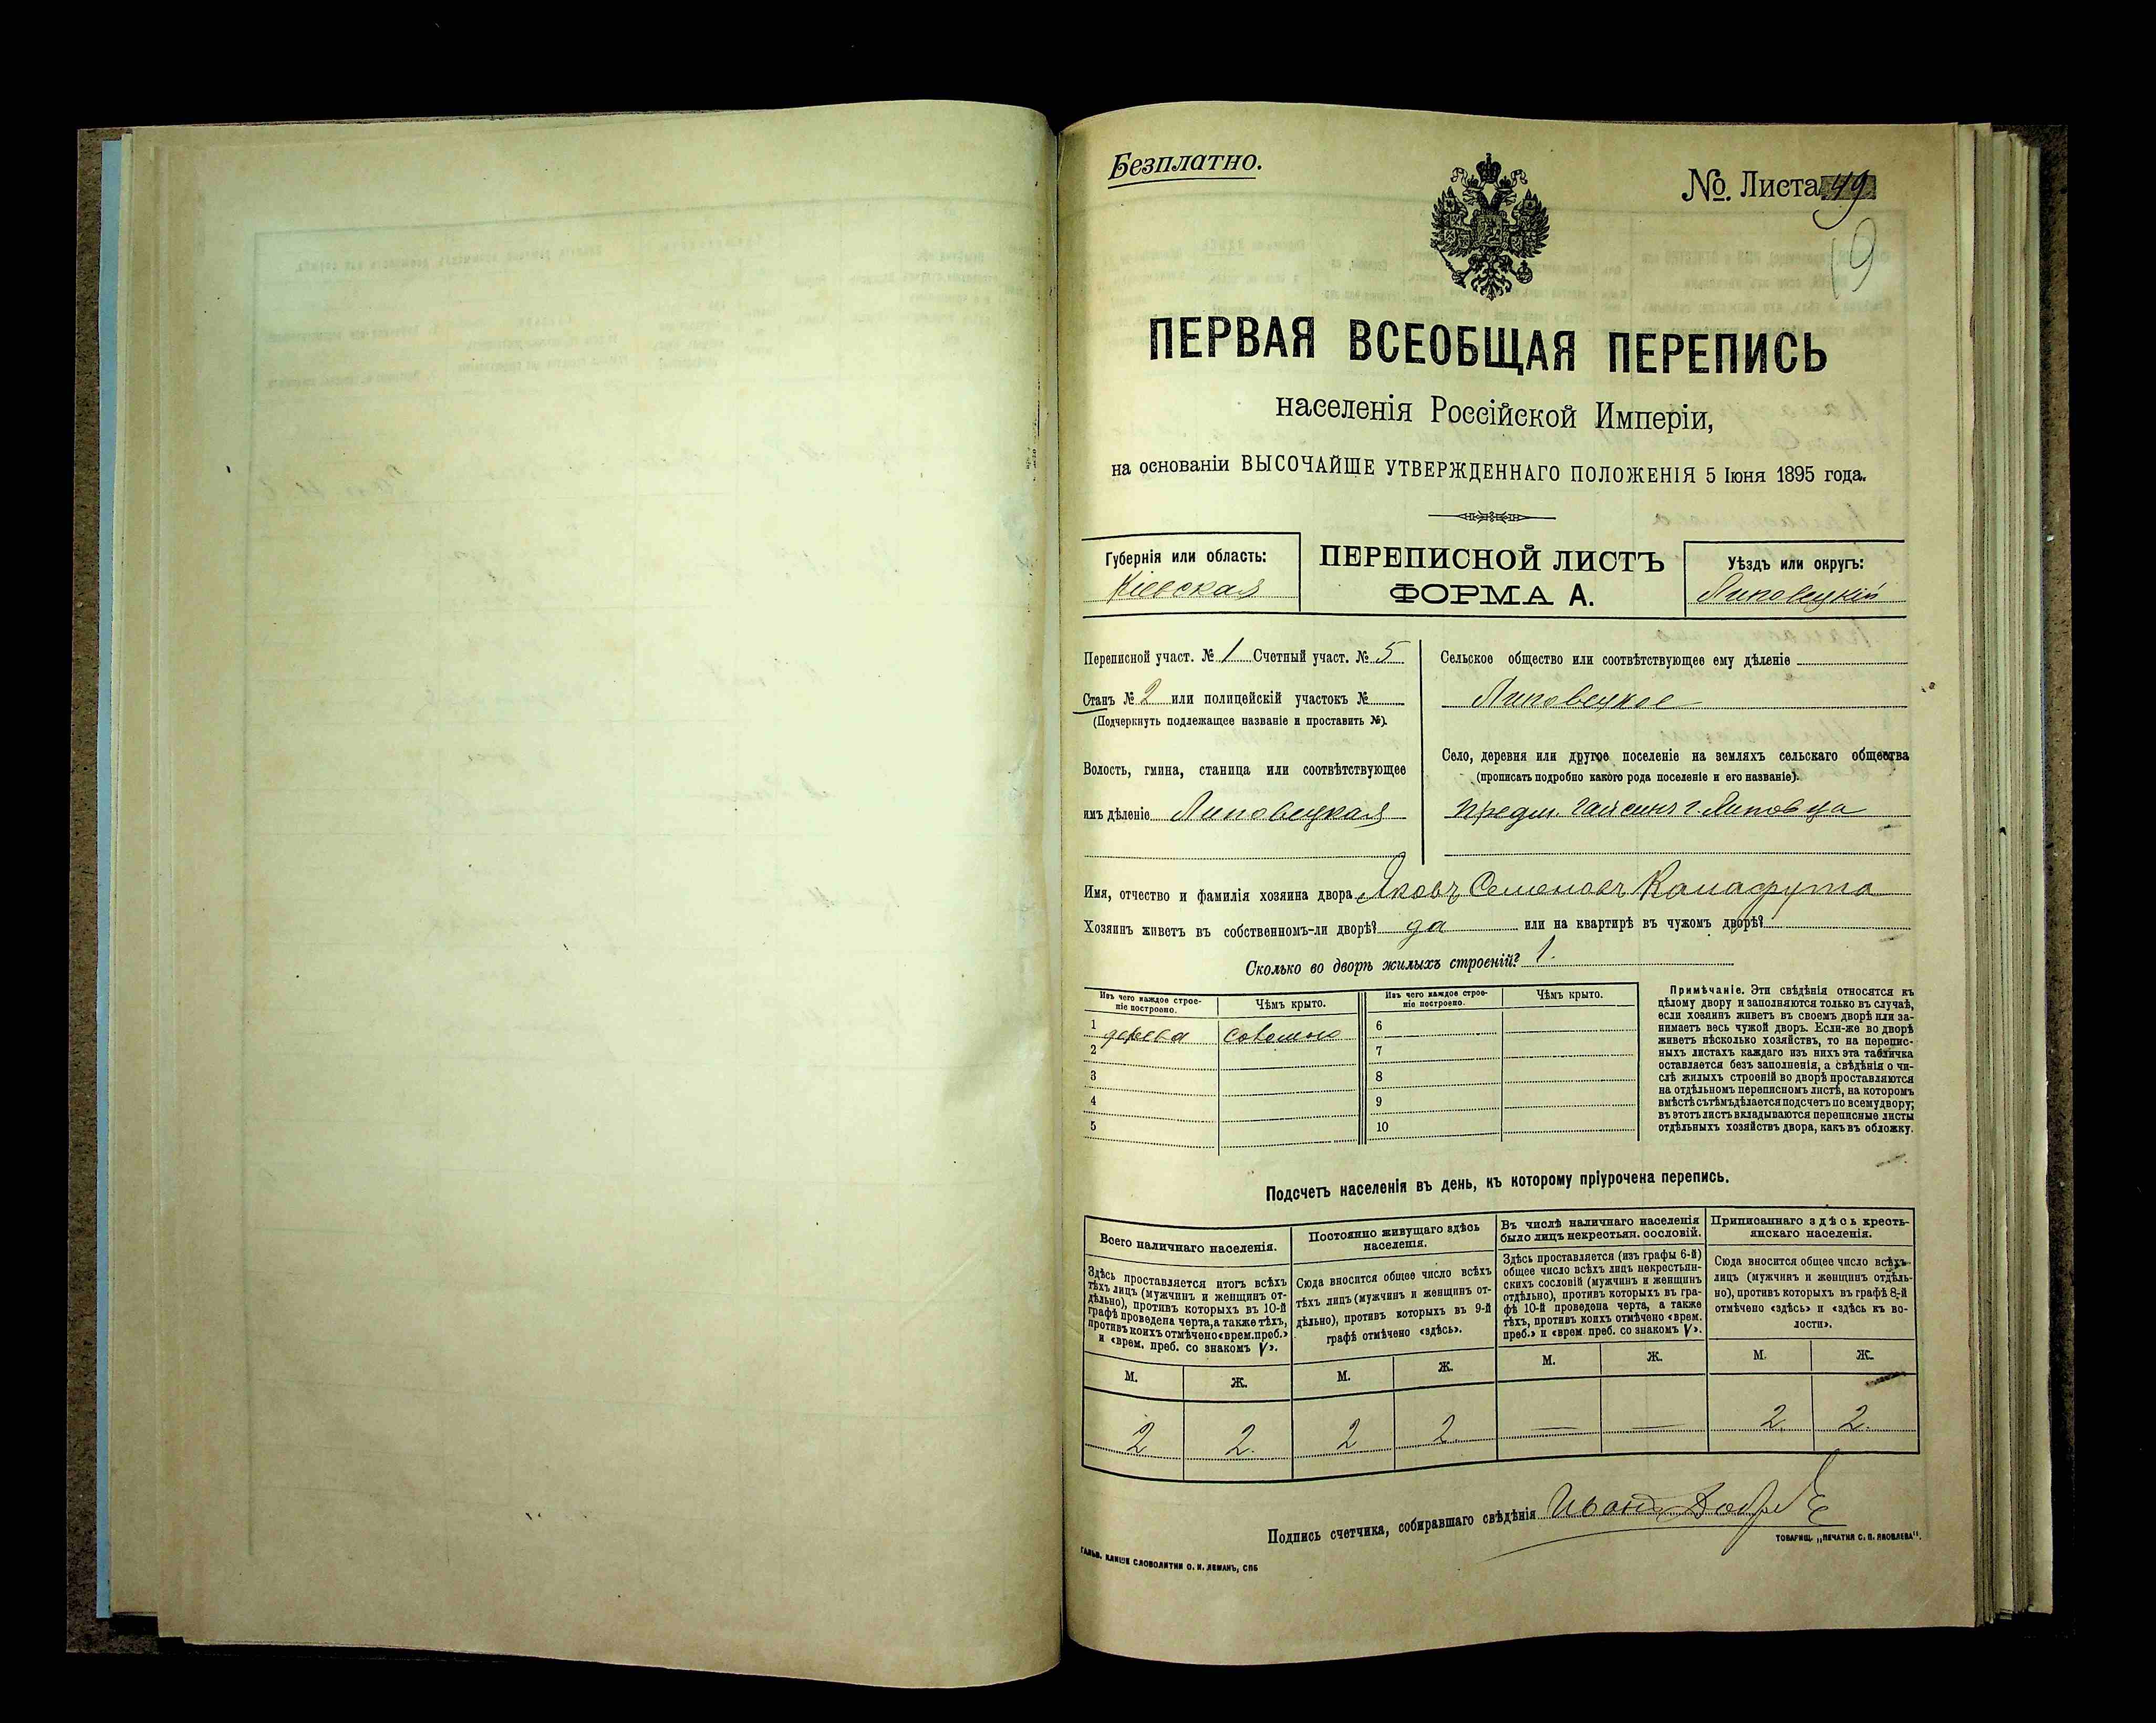 Безплатно.
№. Листа 49
19
ПЕРВАЯ ВСЕОБЩАЯ ПЕРЕПИСЬ
населенія Россійской Имперіи,
на основаніи ВЫСОЧАЙШЕ УТВЕРЖДЕННАГО ПОЛОЖЕНІЯ 5 Іюня 1895 года.
Губернія или область:
Кіевская
ПЕРЕПИСНОЙ ЛИСТЪ
ФОРМА А.
Уѣздъ или округъ:
Липовецкій
Переписной участ. № 1 Счетный участ. № 5
Станъ № 2 или полицейскій участокъ №
(Подчеркнуть подлежащее названіе и проставить №).
Волость, гмина, станица или соотвѣтствующее
имъ дѣленіе Липовецкая
Сельское общество или соотвѣтствующее ему дѣленіе
Липовецкое
Село, деревня или другое поселеніе на земляхъ сельскаго общества
(прописать подробно какого рода поселеніе и его названіе).
предм. Гайсинъ г. Липовца
Имя, отчество и фамилія хозяина двора Яковъ Семеновъ Канафута
Хозяинъ живетъ въ собственномъ-ли дворѣ? да или на квартирѣ въ чужомъ дворѣ?
Сколько во дворѣ жилыхъ строеній? 1.
Изъ чего каждое строе-
ніе построено.
Чѣмъ крыто.
Изъ чего каждое строе-
ніе построено.
Чѣмъ крыто.
1 дерева соломою
2
3
4
5
6
7
8
9
10
Примѣчаніе. Эти свѣдѣнія относятся къ
цѣлому двору и заполняются только въ случаѣ,
если хозяинъ живетъ въ своемъ дворѣ или за-
нимаетъ весь чужой дворъ. Если-же во дворѣ
живетъ нѣсколько хозяйствъ, то на перепис-
ныхъ листахъ каждаго изъ нихъ эта табличка
оставляется безъ заполненія, а свѣдѣнія о чи-
слѣ жилыхъ строеній во дворѣ проставляются
на отдѣльномъ переписномъ листѣ, на которомъ
вмѣстѣ съ тѣмъ дѣлается подсчетъ по всему двору;
въ этотъ листъ вкладываются переписные листы
отдѣльныхъ хозяйствъ двора, какъ въ обложку.
Подсчетъ населенія въ день, къ которому пріурочена перепись.
Всего наличнаго населенія.
Здѣсь проставляется итогъ всѣхъ
тѣхъ лицъ (мужчинъ и женщинъ от-
дѣльно), противъ которыхъ въ 10-й
графѣ проведена черта, а также тѣхъ,
противъ коихъ отмѣчено «врем. преб.»
и «врем. преб. со знакомъ V».
Постоянно живущаго здѣсь
населенія.
Сюда вносится общее число всѣхъ
тѣхъ лицъ (мужчинъ и женщинъ от-
дѣльно), противъ которыхъ въ 9-й
графѣ отмѣчено «здѣсь».
Въ числѣ наличнаго населенія
было лицъ некрестьян. сословій.
Здѣсь проставляется (изъ графы 6-й)
общее число всѣхъ лицъ некрестьян-
скихъ сословій (мужчинъ и женщинъ
отдѣльно), противъ которыхъ въ гра-
фѣ 10-й проведена черта, а также
тѣхъ, противъ коихъ отмѣчено «врем.
преб.» и «врем. преб. со знакомъ V».
Приписаннаго здѣсь кресть-
янскаго населенія.
Сюда вносится общее число всѣхъ
лицъ (мужчинъ и женщинъ отдѣль-
но), противъ которыхъ въ графѣ 8-й
отмѣчено «здѣсь» и «здѣсь къ во-
лости».
М. Ж. М. Ж. М. Ж. М. Ж.
2 2. 2 2 — — 2. 2.
Подпись счетчика, собиравшаго свѣдѣнія Иванъ
ГАЛЬВ. КЛИШЕ СЛОВОЛИТНИ О. И. ЛЕМАНЪ, СПБ
ТОВАРИЩ. „ПЕЧАТНЯ С. П. ЯКОВЛЕВА".